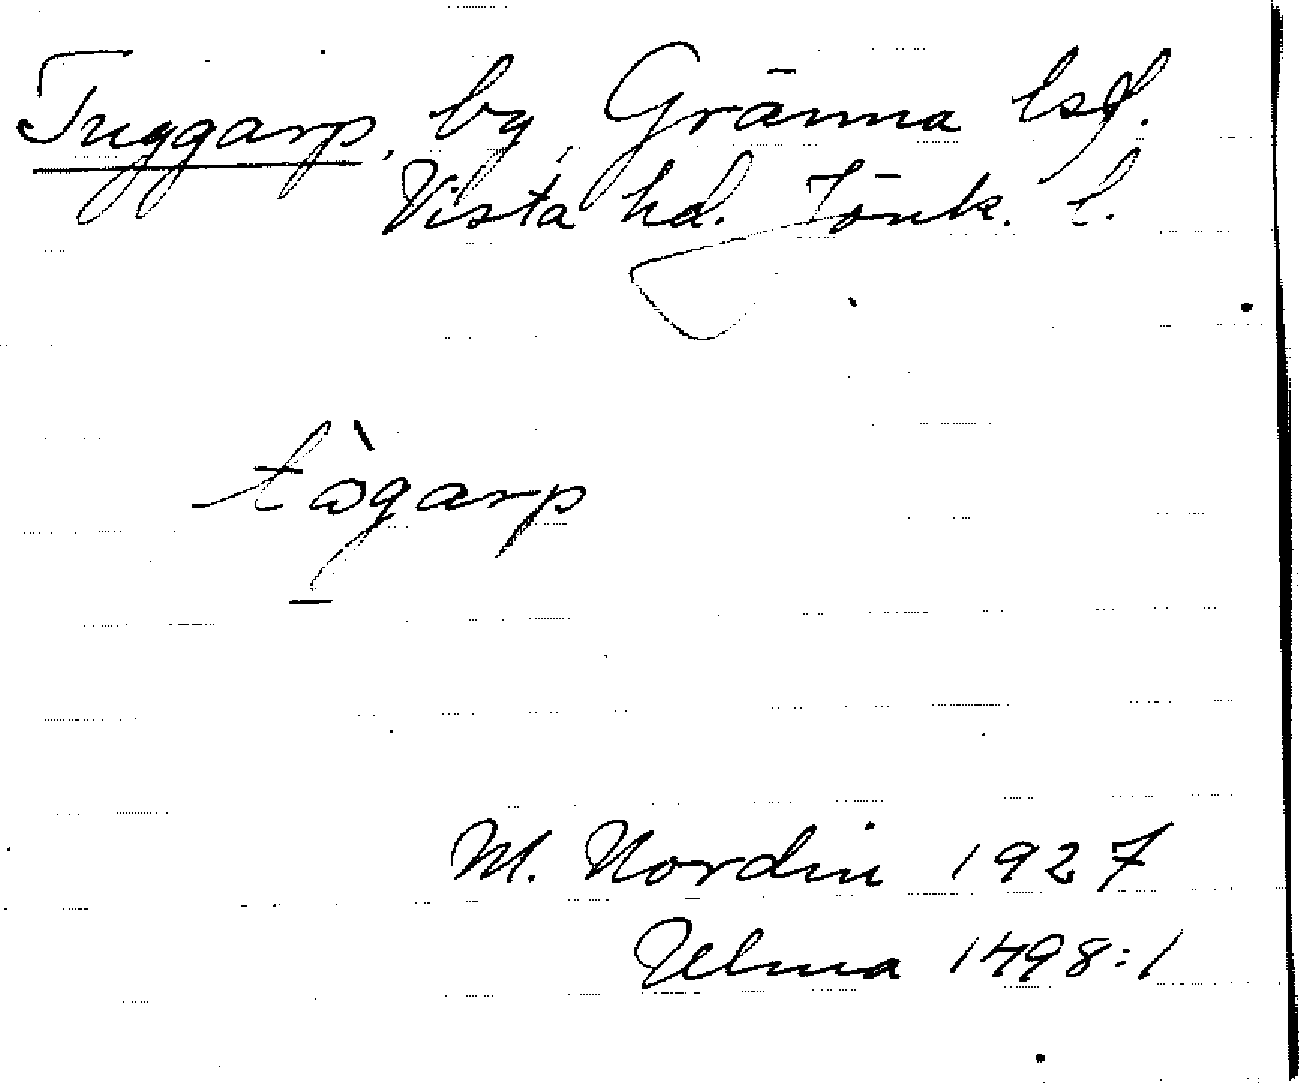 Tuggarp, by, Gränna lsf.
Vista hd. Jönk. l.
tɷ̀garp
M. Nordin 1927
Ulma 1498:1